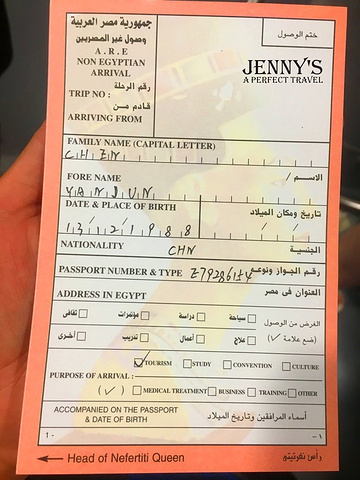 جمهورية مصر العربية
وصول غير المصريين
A . R . E
NON EGYPTIAN
ARRIVAL
رقم الرحلة
TRIP NO :
قادم من
ARRIVING FROM
ختم الوصول
JENNY'S
A PERFECT TRAVEL
FAMILY NAME (CAPITAL LETTER)
CHEN
FORE NAME الاسم /
YANJUN
DATE & PLACE OF BIRTH تاريخ ومكان الميلاد
13/12/1988 / /
NATIONALITY CHN الجنسية
PASSPORT NUMBER & TYPE رقم الجواز ونوعه
ADDRESS IN EGYPT العنوان فى مصر
الغرض من الوصول سياحة دراسة مؤتمرات ثقافى
(ضع علامة ✓) علاج أعمال تدريب أخرى
TOURISM STUDY CONVENTION CULTURE
PURPOSE OF ARRIVAL :
(✓) MEDICAL TREATMENT BUSINESS TRAINING OTHER
ACCOMPANIED ON THE PASSPORT
& DATE OF BIRTH
أسماء المرافقين وتاريخ الميلاد
1 - ١ -
← Head of Nefertiti Queen رأس نفرتيتى